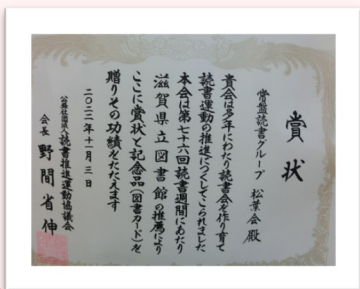 賞状
常盤読書グループ 松葉会殿
貴会は多年にわたり読書会を作り育て
読書運動の推進につくしてこられました
本会は第七十六回読書週間にあたり
滋賀県立図書館の推薦により
ここに賞状と記念品(図書カード)を
贈りその功績をたたえます
二〇二二年十一月三日
公益社団法人読書推進運動協議会
会長 野間省伸